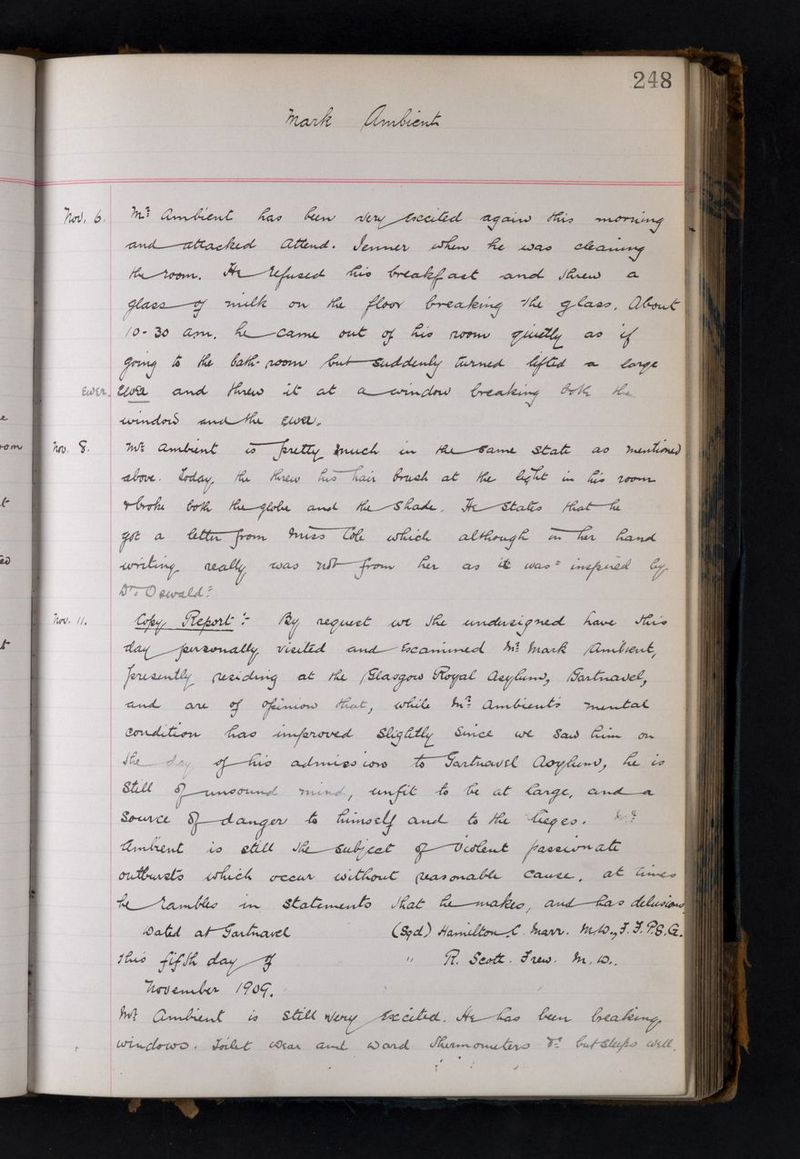 248
Mark Ambient
Nov. 6. Mr. Ambient has been very excited again this morning
and attacked Attend. Jenner when he was cleaning
the room. He refused his breakfast and threw a
glass of milk on the floor breaking the glass. About
10-30 am. he came out of his room quietly as if
going to the bath-room but suddenly turned lifted a large
ewer. ewer and threw it at a window breaking both the
window and the ewer.
Nov. 8. Mr. Ambient is pretty much in the same state as mentioned
above. Today, he threw his hair brush at the light in his room
& broke both the globe and the shade. He states that he
got a letter from Miss Cole which although in her hand
writing really was not from her as it was "inspired by
Dr. Oswald."
Nov. 11. Copy Report :- By request we the undersigned have this
day personally visited and examined Mr. Mark Ambient,
presently residing at the Glasgow Royal Asylum, Gartnavel,
and are of opinion that, while Mr. Ambient's mental
condition has improved slightly since we saw him on
the day of his admission to Gartnavel Asylum, he is
still of unsound mind, unfit to be at large, and a
source of danger to himself and to the lieges. Mr.
Ambient is still the subject of violent passionate
outbursts which occur without reasonable cause, at times
he rambles in statements that he makes, and has delusions
Dated at Gartnavel (Sgd) Hamilton C. Marr. M.D., F.F.P.S.G.
this fifth day of " R. Scott. Frew. M.D.
November 1909.
Mr. Ambient is still very excited. He has been breaking
windows. Toilet wear and ward thermometers &c but sleeps well.
ed